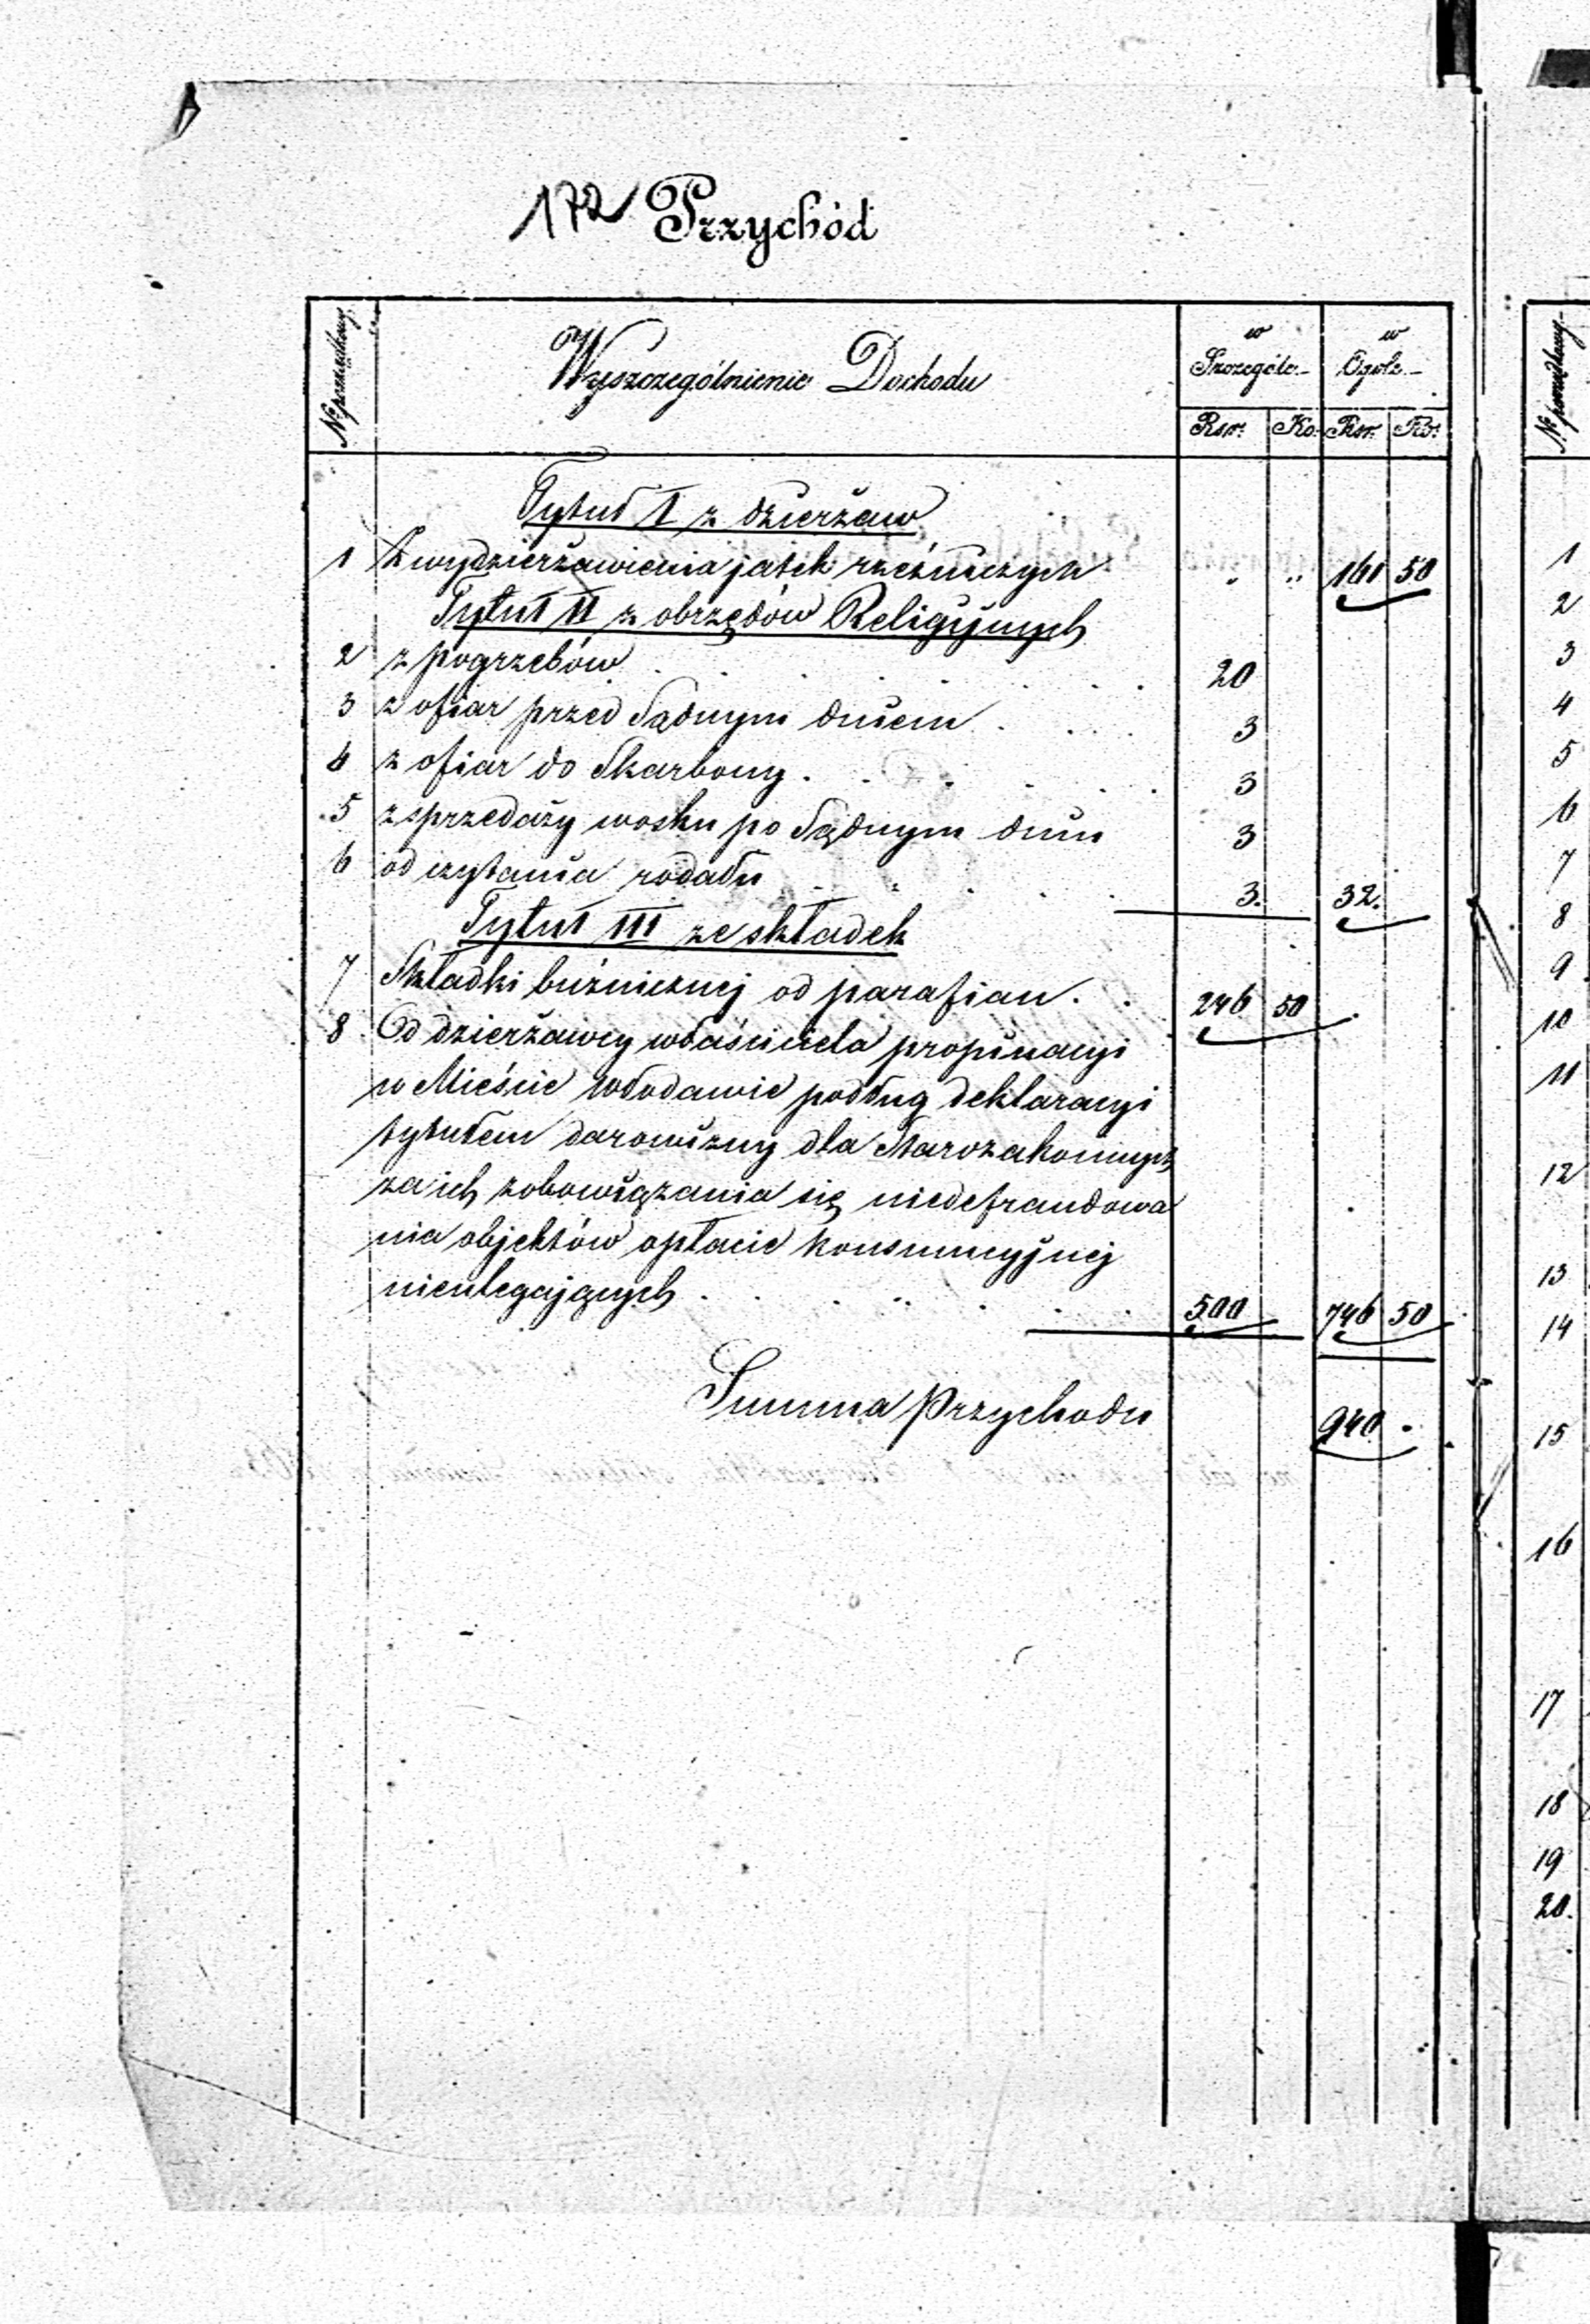 172 Przychód
N° porządkowy
Wyszczególnienie Dochodu
w Szczególe
w Ogóle
Rsr. Ko. Rsr. Ko.
Tytuł I z dzierżaw
1 Z wydzierżawienia jatek rzeźniczych " " 161 50
Tytuł II z obrzędów Religijnych
2 z pogrzebów 20
3 z ofiar przed Sądnym dniem 3
4 z ofiar do Skarbony 3
5 z sprzedaży wosku po Sądnym dniu 3
6 od czytania rodału 3. 32.
Tytuł III ze składek
7 Składki bużnicznej od parafian 246 50
8 Od dzierżawcy właściciela propinacyi
w Mieście Włodawie podług deklaracyi
tytułem darowizny dla Starozakonnych
za ich zobowiązania się niedefraudowa
nia objektów opłacie konsumcyjnej
nieulegających 500 746 50
Summa Przychodu 940 .
N° porządkowy
1
2
3
4
5
6
7
8
9
10
11
12
13
14
15
16
17
18
19
20.